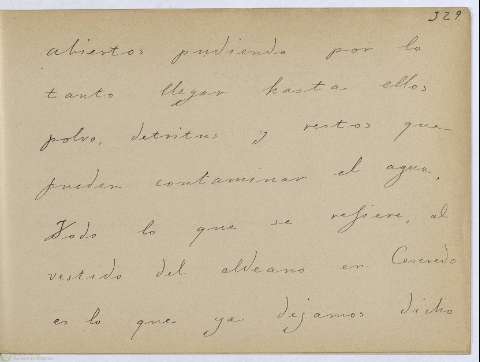 329
abiertos pudiendo por lo
tanto llegar hasta ellos
polvo, detritus y restos que
pueden contaminar el agua.
Todo lo que se refiere, al
vestido del aldeano en Cerredo
es lo que ya dejamos dicho